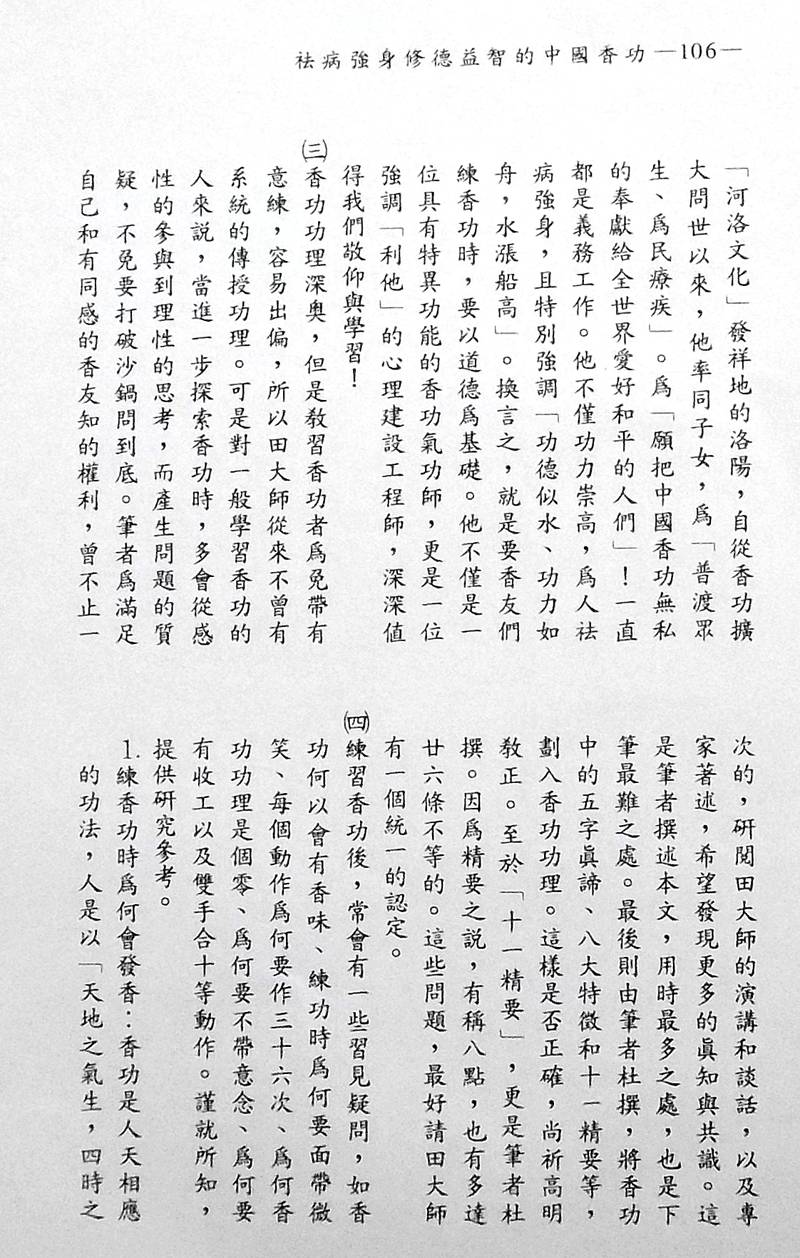 祛病強身修德益智的中國香功—106—
「河洛文化」發祥地的洛陽，自從香功擴
大問世以來，他率同子女，爲「普渡眾
生、爲民療疾」。爲「願把中國香功無私
的奉獻給全世界愛好和平的人們」！一直
都是義務工作。他不僅功力崇高，爲人祛
病強身，且特別強調「功德似水、功力如
舟，水漲船高」。換言之，就是要香友們
練香功時，要以道德爲基礎。他不僅是一
位具有特異功能的香功氣功師，更是一位
強調「利他」的心理建設工程師，深深值
得我們敬仰與學習！
㈢香功功理深奧，但是教習香功者爲免帶有
意練，容易出偏，所以田大師從來不曾有
系統的傳授功理。可是對一般學習香功的
人來說，當進一步探索香功時，多會從感
性的參與到理性的思考，而產生問題的質
疑，不免要打破沙鍋問到底。筆者爲滿足
自己和有同感的香友知的權利，曾不止一
次的，研閱田大師的演講和談話，以及專
家著述，希望發現更多的眞知與共識。這
是筆者撰述本文，用時最多之處，也是下
筆最難之處。最後則由筆者杜撰，將香功
中的五字眞諦、八大特徵和十一精要等，
劃入香功功理。這樣是否正確，尚祈高明
教正。至於「十一精要」，更是筆者杜
撰。因爲精要之說，有稱八點，也有多達
廿六條不等的。這些問題，最好請田大師
有一個統一的認定。
㈣練習香功後，常會有一些習見疑問，如香
功何以會有香味、練功時爲何要面帶微
笑、每個動作爲何要作三十六次、爲何香
功功理是個零、爲何要不帶意念、爲何要
有收工以及雙手合十等動作。謹就所知，
提供研究參考。
1.練香功時爲何會發香：香功是人天相應
的功法，人是以「天地之氣生，四時之